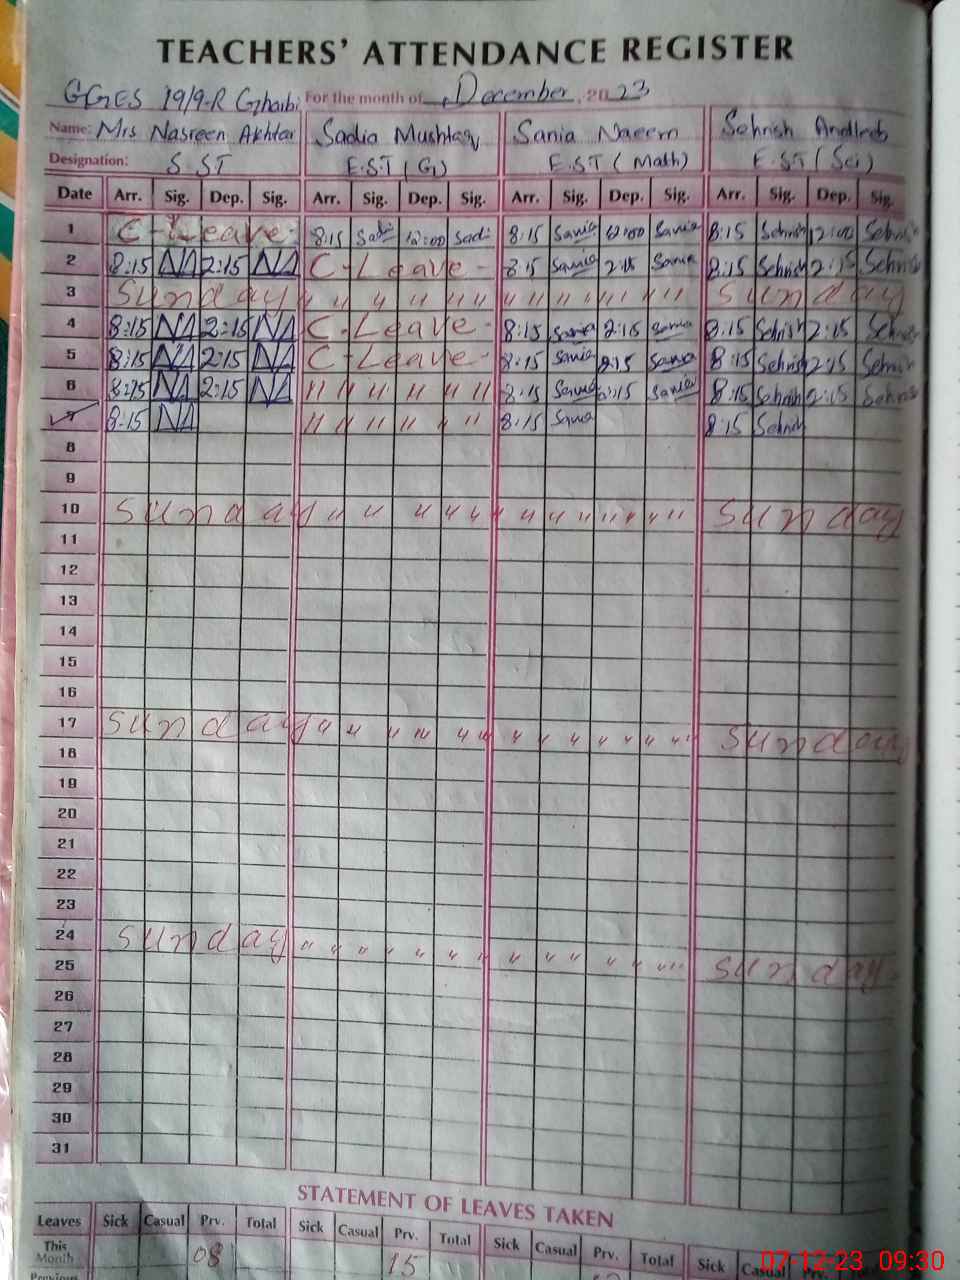 TEACHERS' ATTENDANCE REGISTER
GGES 19/9-R Gharibi For the month of December, 2023
Name: Mrs Nasreen Akhtar Sadia Mushtaq Sania Naeem Sehrish Andleeb
Designation: S.ST E.ST (G) E.ST (Math) E.ST (Sci)
Date Arr. Sig. Dep. Sig. Arr. Sig. Dep. Sig. Arr. Sig. Dep. Sig. Arr. Sig. Dep. Sig.
1 C-Leave- 8:15 Sadi 12:00 Sadi 8:15 Sania 12:00 Sania 8:15 Sehrish 12:00 Sehrish
2 8:15 NA 2:15 NA C-Leave- 8:15 Sania 2:15 Sania 8:15 Sehrish 2:15 Sehrish
3 Sunday " " " " " " " " " " " " " Sunday
4 8:15 NA 2:15 NA C-Leave- 8:15 Sania 2:15 Sania 8:15 Sehrish 2:15 Sehrish
5 8:15 NA 2:15 NA C-Leave- 8:15 Sania 2:15 Sania 8:15 Sehrish 2:15 Sehrish
6 8:15 NA 2:15 NA " " " " " " 8:15 Sania 2:15 Sania 8:15 Sehrish 2:15 Sehrish
7 8:15 NA " " " " " " 8:15 Sania 8:15 Sehrish
8
9
10 Sunday " " " " " " " " " " " " " Sunday
11
12
13
14
15
16
17 Sunday " " " " " " " " " " " " " Sunday
18
19
20
21
22
23
24 Sunday " " " " " " " " " " " " "
25 Sunday
26
27
28
29
30
31
STATEMENT OF LEAVES TAKEN
Leaves Sick Casual Prv. Total Sick Casual Prv. Total Sick Casual Prv. Total Sick Casual Prv.
This Month 08 15
Previous
07-12-23 09:30